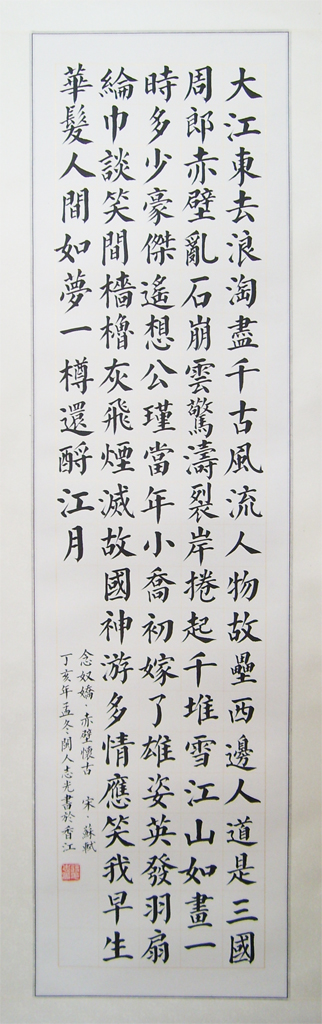 大江東去浪淘盡千古風流人物故壘西邊人道是三國
周郎赤壁亂石崩雲驚濤裂岸捲起千堆雪江山如畫一
時多少豪傑遙想公瑾當年小喬初嫁了雄姿英發羽扇
綸巾談笑間檣櫓灰飛煙滅故國神游多情應笑我早生
華髮人間如夢一樽還酹江月
念奴嬌·赤壁懷古 宋·蘇軾
丁亥年孟冬閩人志光書於香江